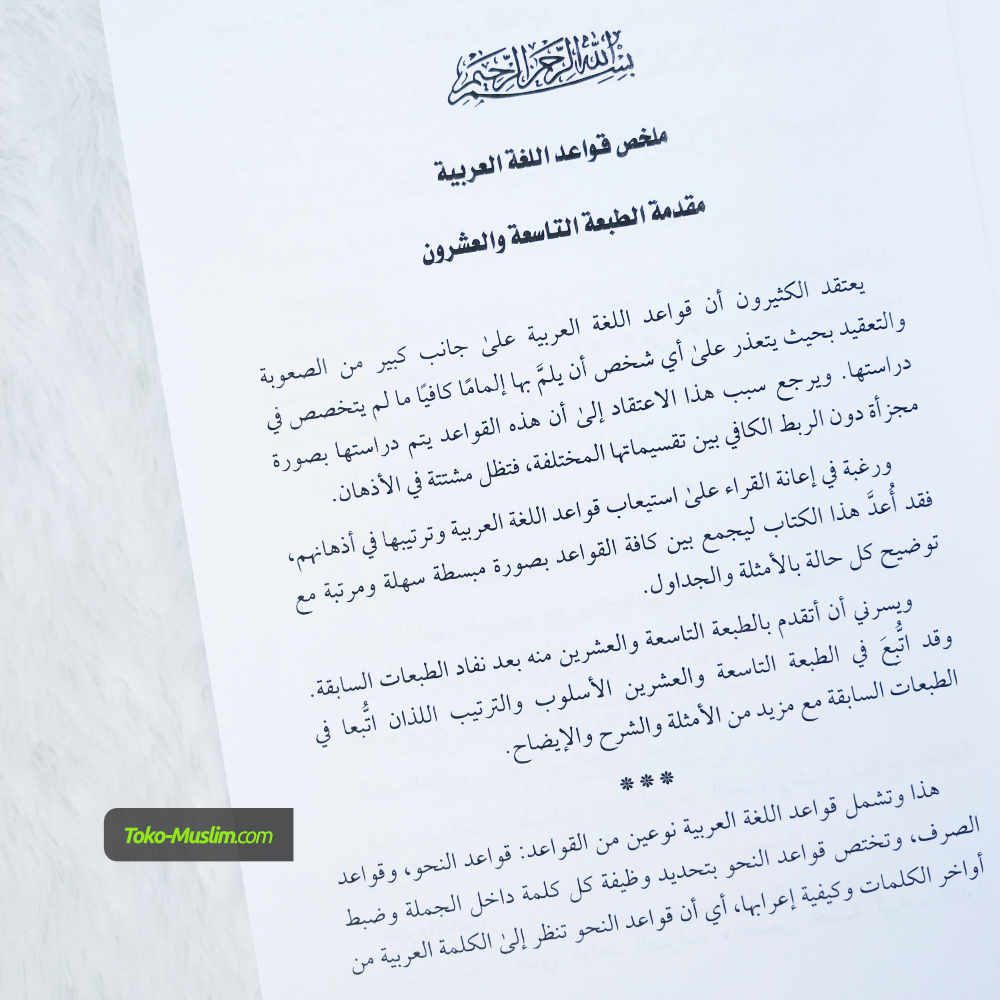 بسم الله الرحمن الرحيم
ملخص قواعد اللغة العربية
مقدمة الطبعة التاسعة والعشرون
يعتقد الكثيرون أن قواعد اللغة العربية علىٰ جانب كبير من الصعوبة
والتعقيد بحيث يتعذر علىٰ أي شخص أن يلمَّ بها إلمامًا كافيًا ما لم يتخصص في
دراستها. ويرجع سبب هذا الاعتقاد إلىٰ أن هذه القواعد يتم دراستها بصورة
مجزأة دون الربط الكافي بين تقسيماتها المختلفة، فتظل مشتتة في الأذهان.
ورغبة في إعانة القراء علىٰ استيعاب قواعد اللغة العربية وترتيبها في أذهانهم،
فقد أُعدَّ هذا الكتاب ليجمع بين كافة القواعد بصورة مبسطة سهلة ومرتبة مع
توضيح كل حالة بالأمثلة والجداول.
ويسرني أن أتقدم بالطبعة التاسعة والعشرين منه بعد نفاد الطبعات السابقة.
وقد اتُّبعَ في الطبعة التاسعة والعشرين الأسلوب والترتيب اللذان اتُّبعا في
الطبعات السابقة مع مزيد من الأمثلة والشرح والإيضاح.
***
هذا وتشمل قواعد اللغة العربية نوعين من القواعد: قواعد النحو، وقواعد
الصرف، وتختص قواعد النحو بتحديد وظيفة كل كلمة داخل الجملة وضبط
أواخر الكلمات وكيفية إعرابها، أي أن قواعد النحو تنظر إلىٰ الكلمة العربية من
Toko-Muslim.com